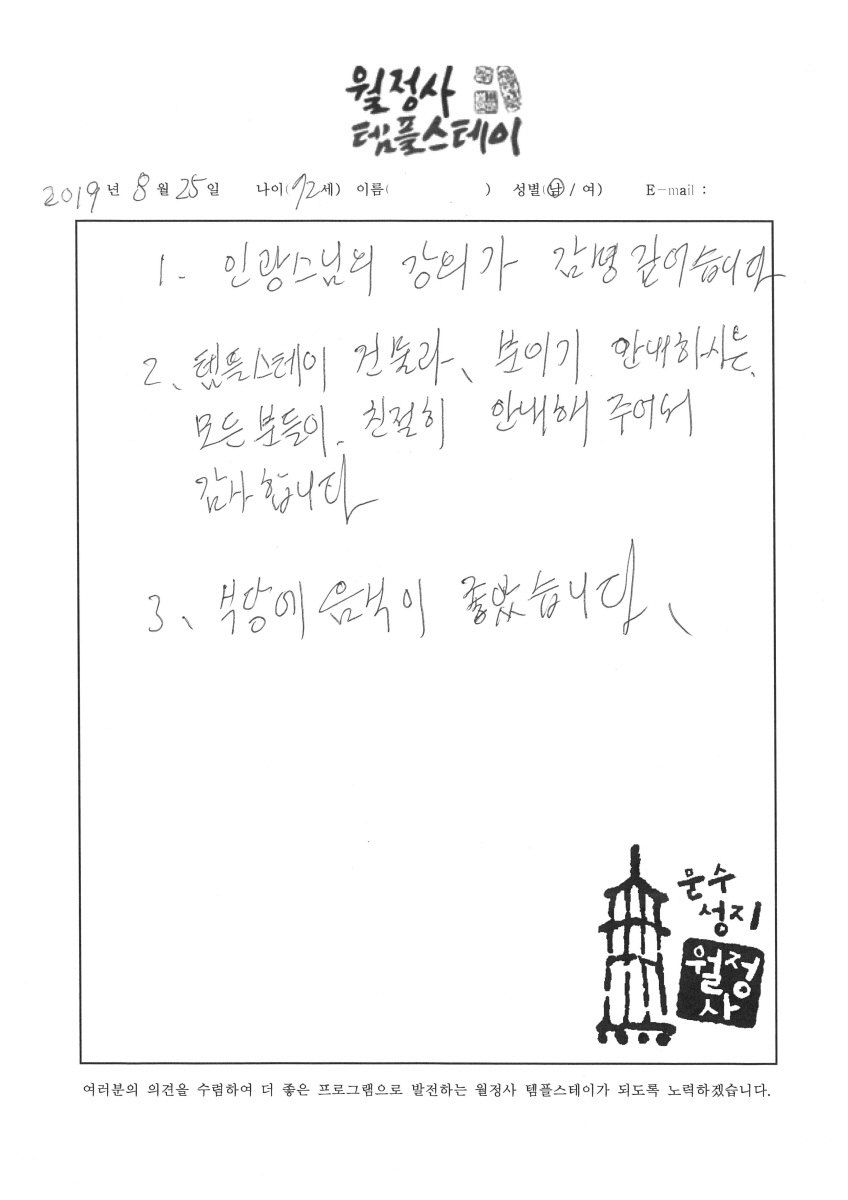 월정사
템플스테이
2019년 8월 25일 나이(72세) 이름( ) 성별(남/여) E-mail :
1. 인광스님의 강의가 감명 깊어습니다
2、템플스테이 건물과、분이기 안내하시는
모든 분들이. 친절히 안내해 주어서
감사합니다
3、식당에 음식이 좋았습니다、
문수
성지
월정
사
여러분의 의견을 수렴하여 더 좋은 프로그램으로 발전하는 월정사 템플스테이가 되도록 노력하겠습니다.